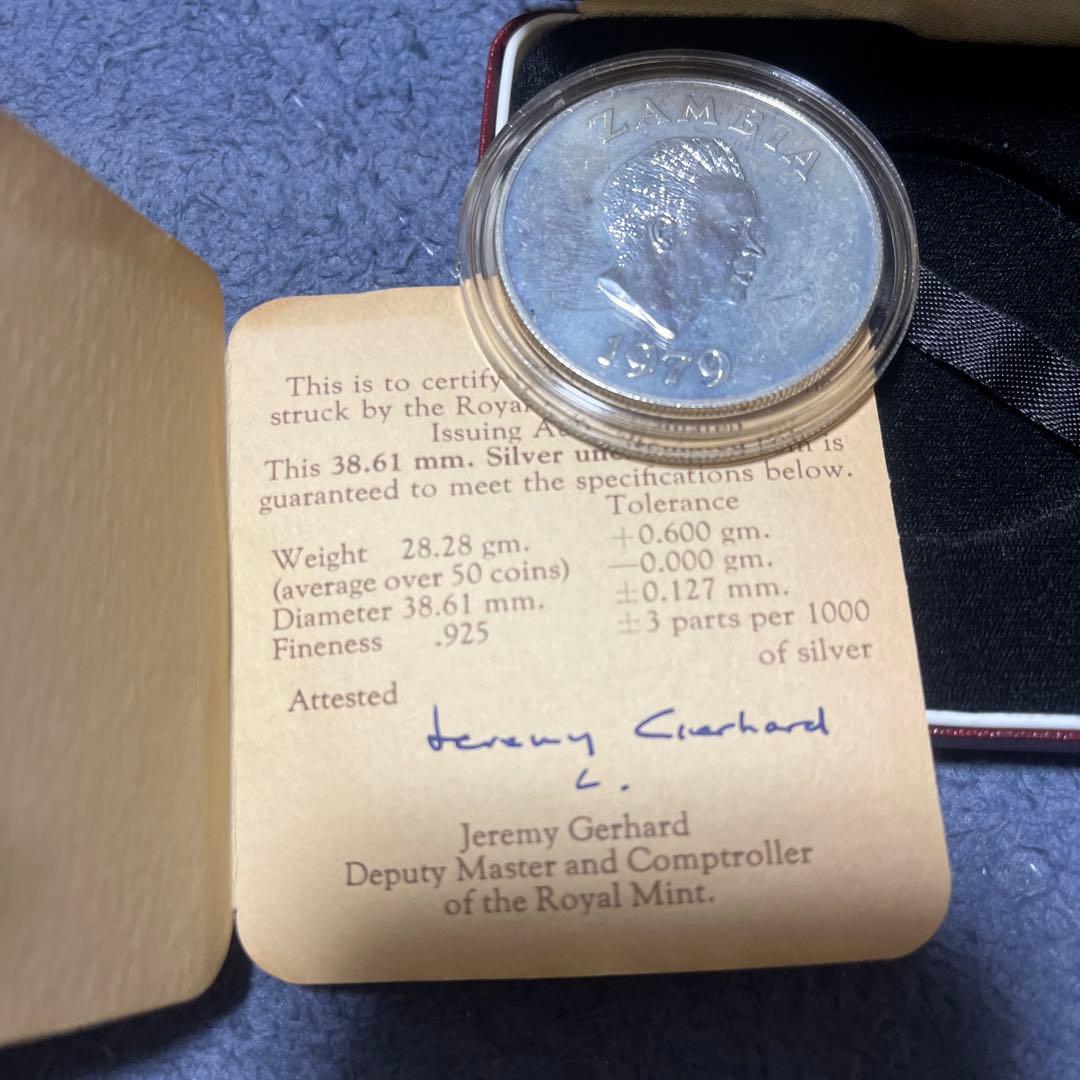 ZAMBIA
1979
This is to certify
struck by the Royal
Issuing
This 38.61 mm. Silver is
guaranteed to meet the specifications below.
Tolerance
Weight 28.28 gm. +0.600 gm.
(average over 50 coins) —0.000 gm.
Diameter 38.61 mm. ±0.127 mm.
Fineness .925 ±3 parts per 1000
of silver
Attested
Jeremy Gerhard
Jeremy Gerhard
Deputy Master and Comptroller
of the Royal Mint.